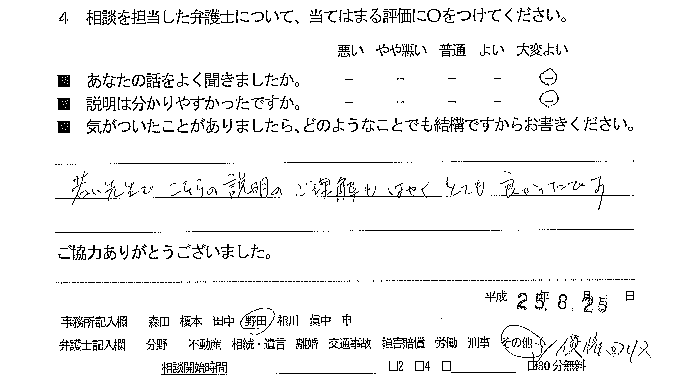 4 相談を担当した弁護士について、当てはまる評価に○をつけてください。
悪い やや悪い 普通 よい 大変よい
■ あなたの話をよく聞きましたか。 － － － － －
■ 説明は分かりやすかったですか。 － － － － －
■ 気がついたことがありましたら、どのようなことでも結構ですからお書きください。
若い先生で こちらの説明の ご理解も はやく とても 良かったです
ご協力ありがとうございました。
平成 25年 8月 25日
事務所記入欄 森田 榎本 田中 野田 相川 眞中
弁護士記入欄 分野 不動産 相続・遺言 離婚 交通事故 損害賠償 労働 刑事 その他
相談開始時間 □2 □4 □ □30分無料